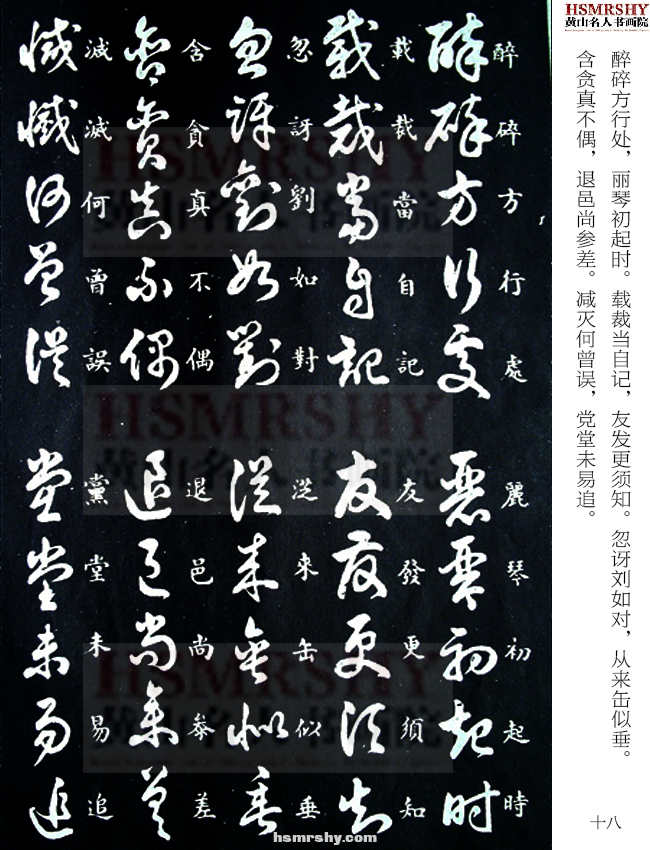 HSMRSHY
黄山名人书画院
醉碎方行处，丽琴初起时。载裁当自记，友发更须知。忽讶刘如对，从来缶似垂。
含贪真不偶，退邑尚参差。减灭何曾误，党堂未易追。
十八
醉碎方行處
麗琴初起時
載裁當自記
友發更須知
忽訝劉如對
從來缶似垂
含貪真不偶
退邑尚參差
減滅何曾誤
黨堂未易追
HSMRSHY
黄山名人书画院
HSMRSHY
黄山名人书画院
HSMRSHY
黄山名人书画院
hsmrshy.com